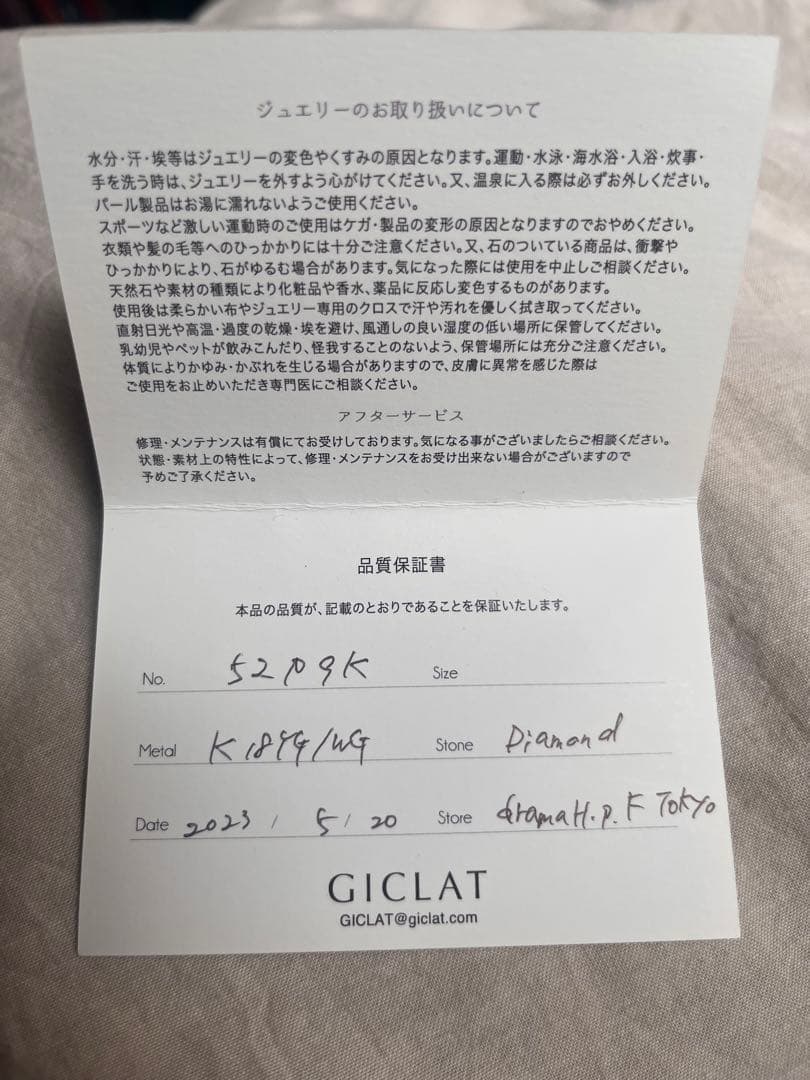 ジュエリーのお取り扱いについて
水分・汗・埃等はジュエリーの変色やくすみの原因となります。運動・水泳・海水浴・入浴・炊事・
手を洗う時は、ジュエリーを外すよう心がけてください。又、温泉に入る際は必ずお外しください。
パール製品はお湯に濡れないようご使用ください。
スポーツなど激しい運動時のご使用はケガ・製品の変形の原因となりますのでおやめください。
衣類や髪の毛等へのひっかかりには十分ご注意ください。又、石のついている商品は、衝撃や
ひっかかりにより、石がゆるむ場合があります。気になった際には使用を中止しご相談ください。
天然石や素材の種類により化粧品や香水、薬品に反応し変色するものがあります。
使用後は柔らかい布やジュエリー専用のクロスで汗や汚れを優しく拭き取ってください。
直射日光や高温・過度の乾燥・埃を避け、風通しの良い湿度の低い場所に保管してください。
乳幼児やペットが飲みこんだり、怪我することのないよう、保管場所には充分ご注意ください。
体質によりかゆみ・かぶれを生じる場合がありますので、皮膚に異常を感じた際は
ご使用をお止めいただき専門医にご相談ください。
アフターサービス
修理・メンテナンスは有償にてお受けしております。気になる事がございましたらご相談ください。
状態・素材上の特性によって、修理・メンテナンスをお受け出来ない場合がございますので
予めご了承ください。
品質保証書
本品の品質が、記載のとおりであることを保証いたします。
No. Size
Metal K18YG/WG Stone Diamond
Date 2023 / 5 / 20 Store H.P.F Tokyo
GICLAT
GICLAT@giclat.com